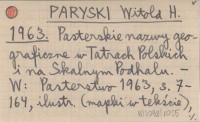 PARYSKI Witold H.
1963. Pasterskie nazwy geo-
graficzne w Tatrach Polskich
i na Skalnym Podhalu. –
W: Pasterstwo 1963, s. 7-
164, ilustr. (mapki w tekście),